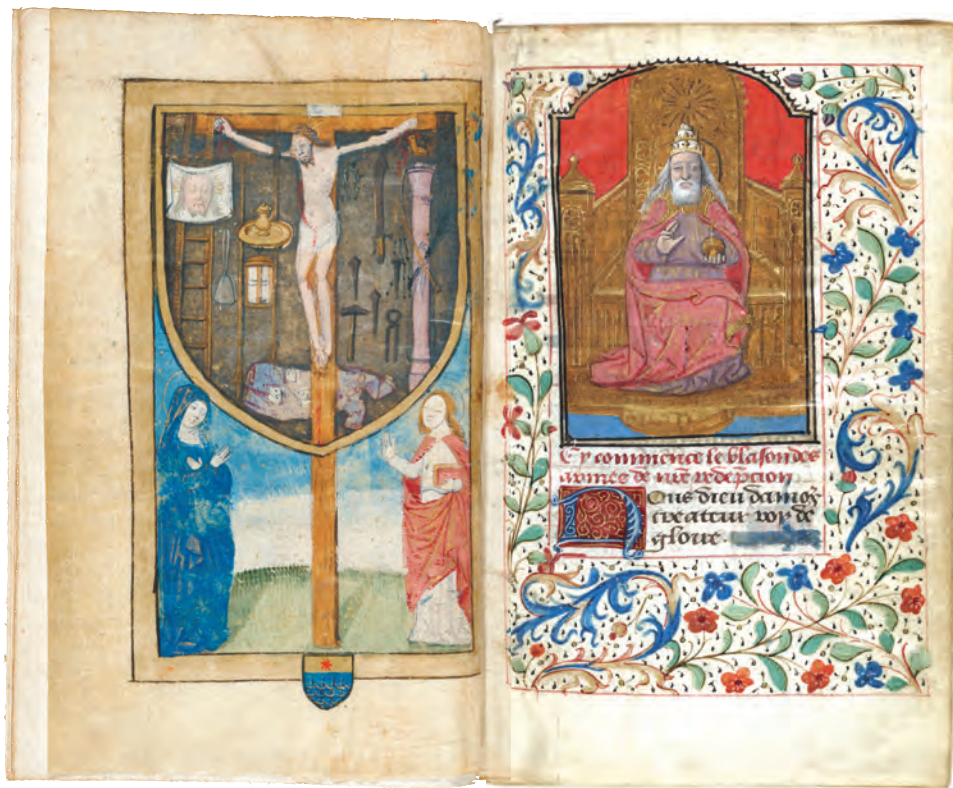 Cy commence le blason des
armes de nr̃e redẽpcion
Nous dieu damor
createur roy de
gloire